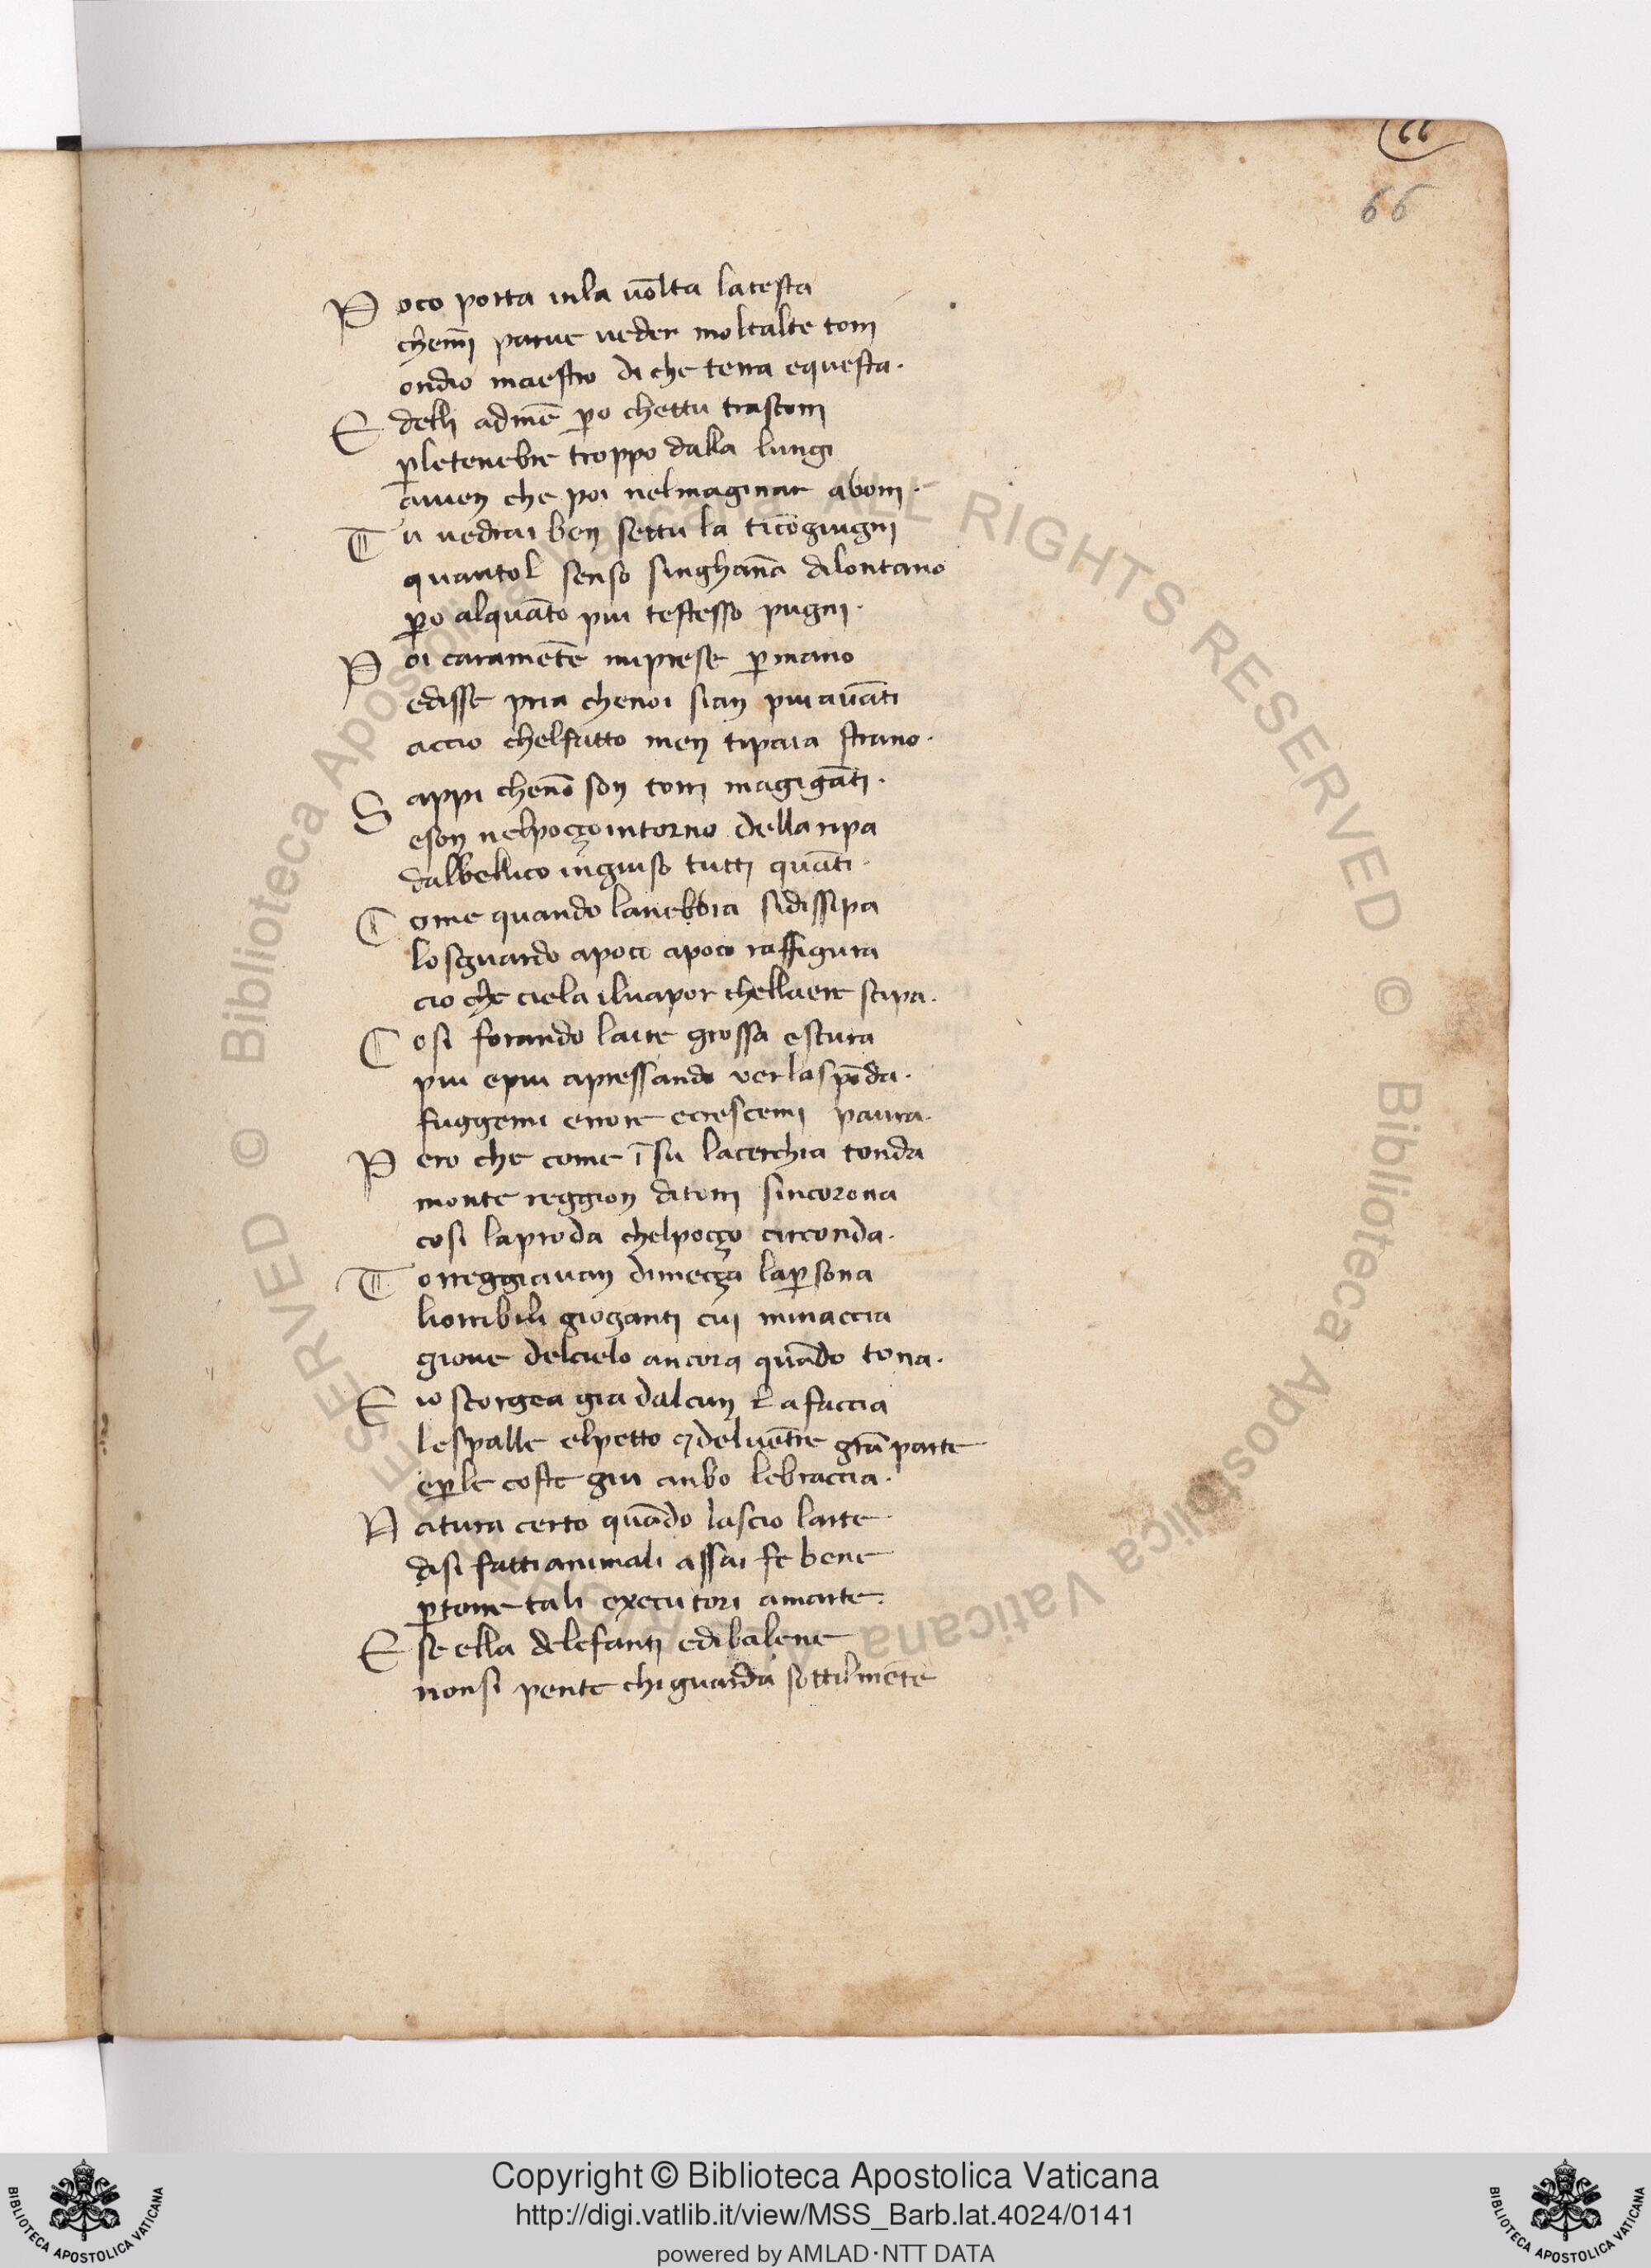 66
66
Poco porta inla uolta latesta
chemi parue ueder moltalte torri
ondio maestro di che terra equesta.
E delli admē ꝑo chettu trascorri
ꝑletenebre troppo dalla lungi
auuen che poi nelmaginar aborri.
Tu uedrai ben settu la ticōgiugni
quantol senso singhāna dilontano
ꝑo alquāto piu testesso pugni.
Poi caramēte miprese ꝑmano
edisse pria chenoi sian piuauāti
accio chelfatto men tipaia strano.
Sappi chenō son torri magigāti.
eson nelpoçço intorno della ripa
dalbellico ingiuso tutti quāti.
Come quando lanebbia sidissipa
losguardo apoco apoco raffigura
cio che ciela iluapor chellaere scipa.
Cosi forando laire grossa escura
piu epiu apressando uer laspōda.
fuggemi errore ecrescemi paura.
Pero che come ī su lacerchia tonda
monte reggion ditorri sincorona
cosi laproda chelpoçço circonda.
Torreggiauan dimeçça laꝑsona
liorribili gioganti cui minaccia
gioue delcielo ancora quādo tona.
E io scorgea gia dalcun la faccia
lespalle elpetto ⁊ deluētre grā parte
eꝑle coste giu anbo lebraccia.
Natura certo quādo lascio larte
disi fatti animali assai fe bene
ꝑtorre tali executori amarte.
E se ella delefanti edibalene
nonsi pente chi guarda sottilmēte
Copyright © Biblioteca Apostolica Vaticana
http://digi.vatlib.it/view/MSS_Barb.lat.4024/0141
powered by AMLAD·NTT DATA
BIBLIOTECA APOSTOLICA VATICANA
BIBLIOTECA APOSTOLICA VATICANA
© Biblioteca Apostolica Vaticana ALL RIGHTS RESERVED © Biblioteca Apostolica Vaticana ALL RIGHTS RESERVED